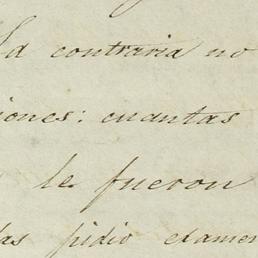 d contraria no
iones: cuantas
le fueron
las pidio exame